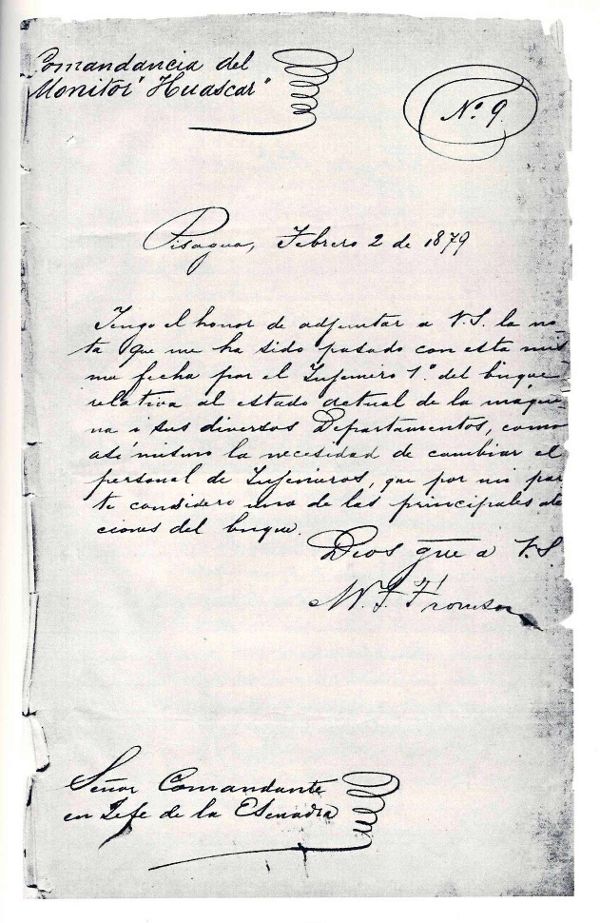 Comandancia del
Monitor "Huascar"
Nº 9.
Pisagua, Febrero 2 de 1879
Tengo el honor de adjuntar a V.S. la no-
ta que me ha sido pasada con esta mis
ma fecha por el Injeniero 1º del buque
relativa al estado actual de la máqui-
na i sus diversos Departamentos, como
asi mismo la necesidad de cambiar el
personal de Injenieros, que por mi par
te considero una de las principales
ciones del buque.
Dios gūe a V.S.
M. J. Thomson
Señor Comandante
en Jefe de la Escuadra